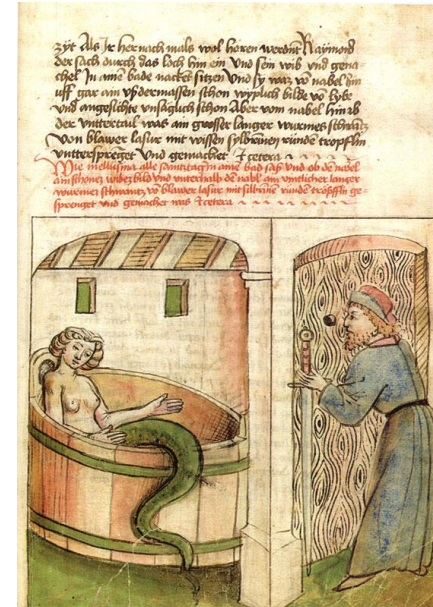 zÿt Als Jr hernachmals wol hören werdnt Raÿmond
der sach durch das loch hin ein Vnd sein wib vnd gema-
chel Jn ainē bade nacket sitzen Vnd sÿ waz vō nabel hin
uff gar ain vßdermassen schön wÿplich bilde vō lÿbe
vnd angesichte vnsäglich schön Aber vom nabel hin ab
der vnttertail was ain grosser langer wurmes schwantz
Von blawer lasur mit wissen sÿlbrinen runden tröpfflin
vnttersprēget Vnd gemachet Et cetera
Wie mellusina alle samsztag jn ainē bad sasß vnd ob dē nabel
ain schönes wibes bild vnd vnterhalb dē nabl ain langer
wurmes schwantz vō blawer lasur mit silbrinē runden tröpfflin ge-
sprenget vnd gemachet was Et cetera